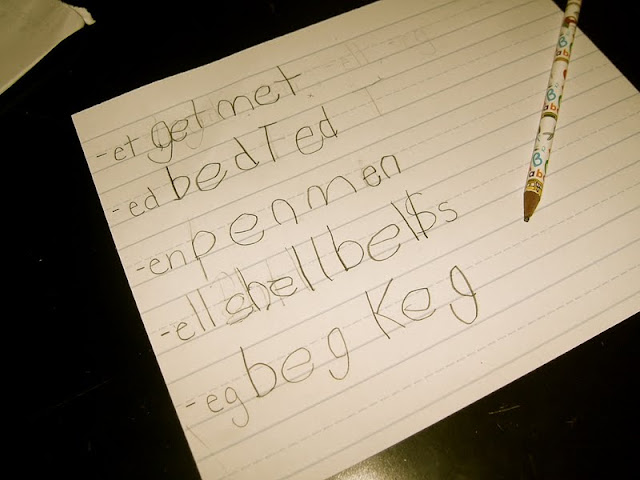 -et get met
-ed bed Ted
-en pen men
-ell shell bells
-eg beg Keg